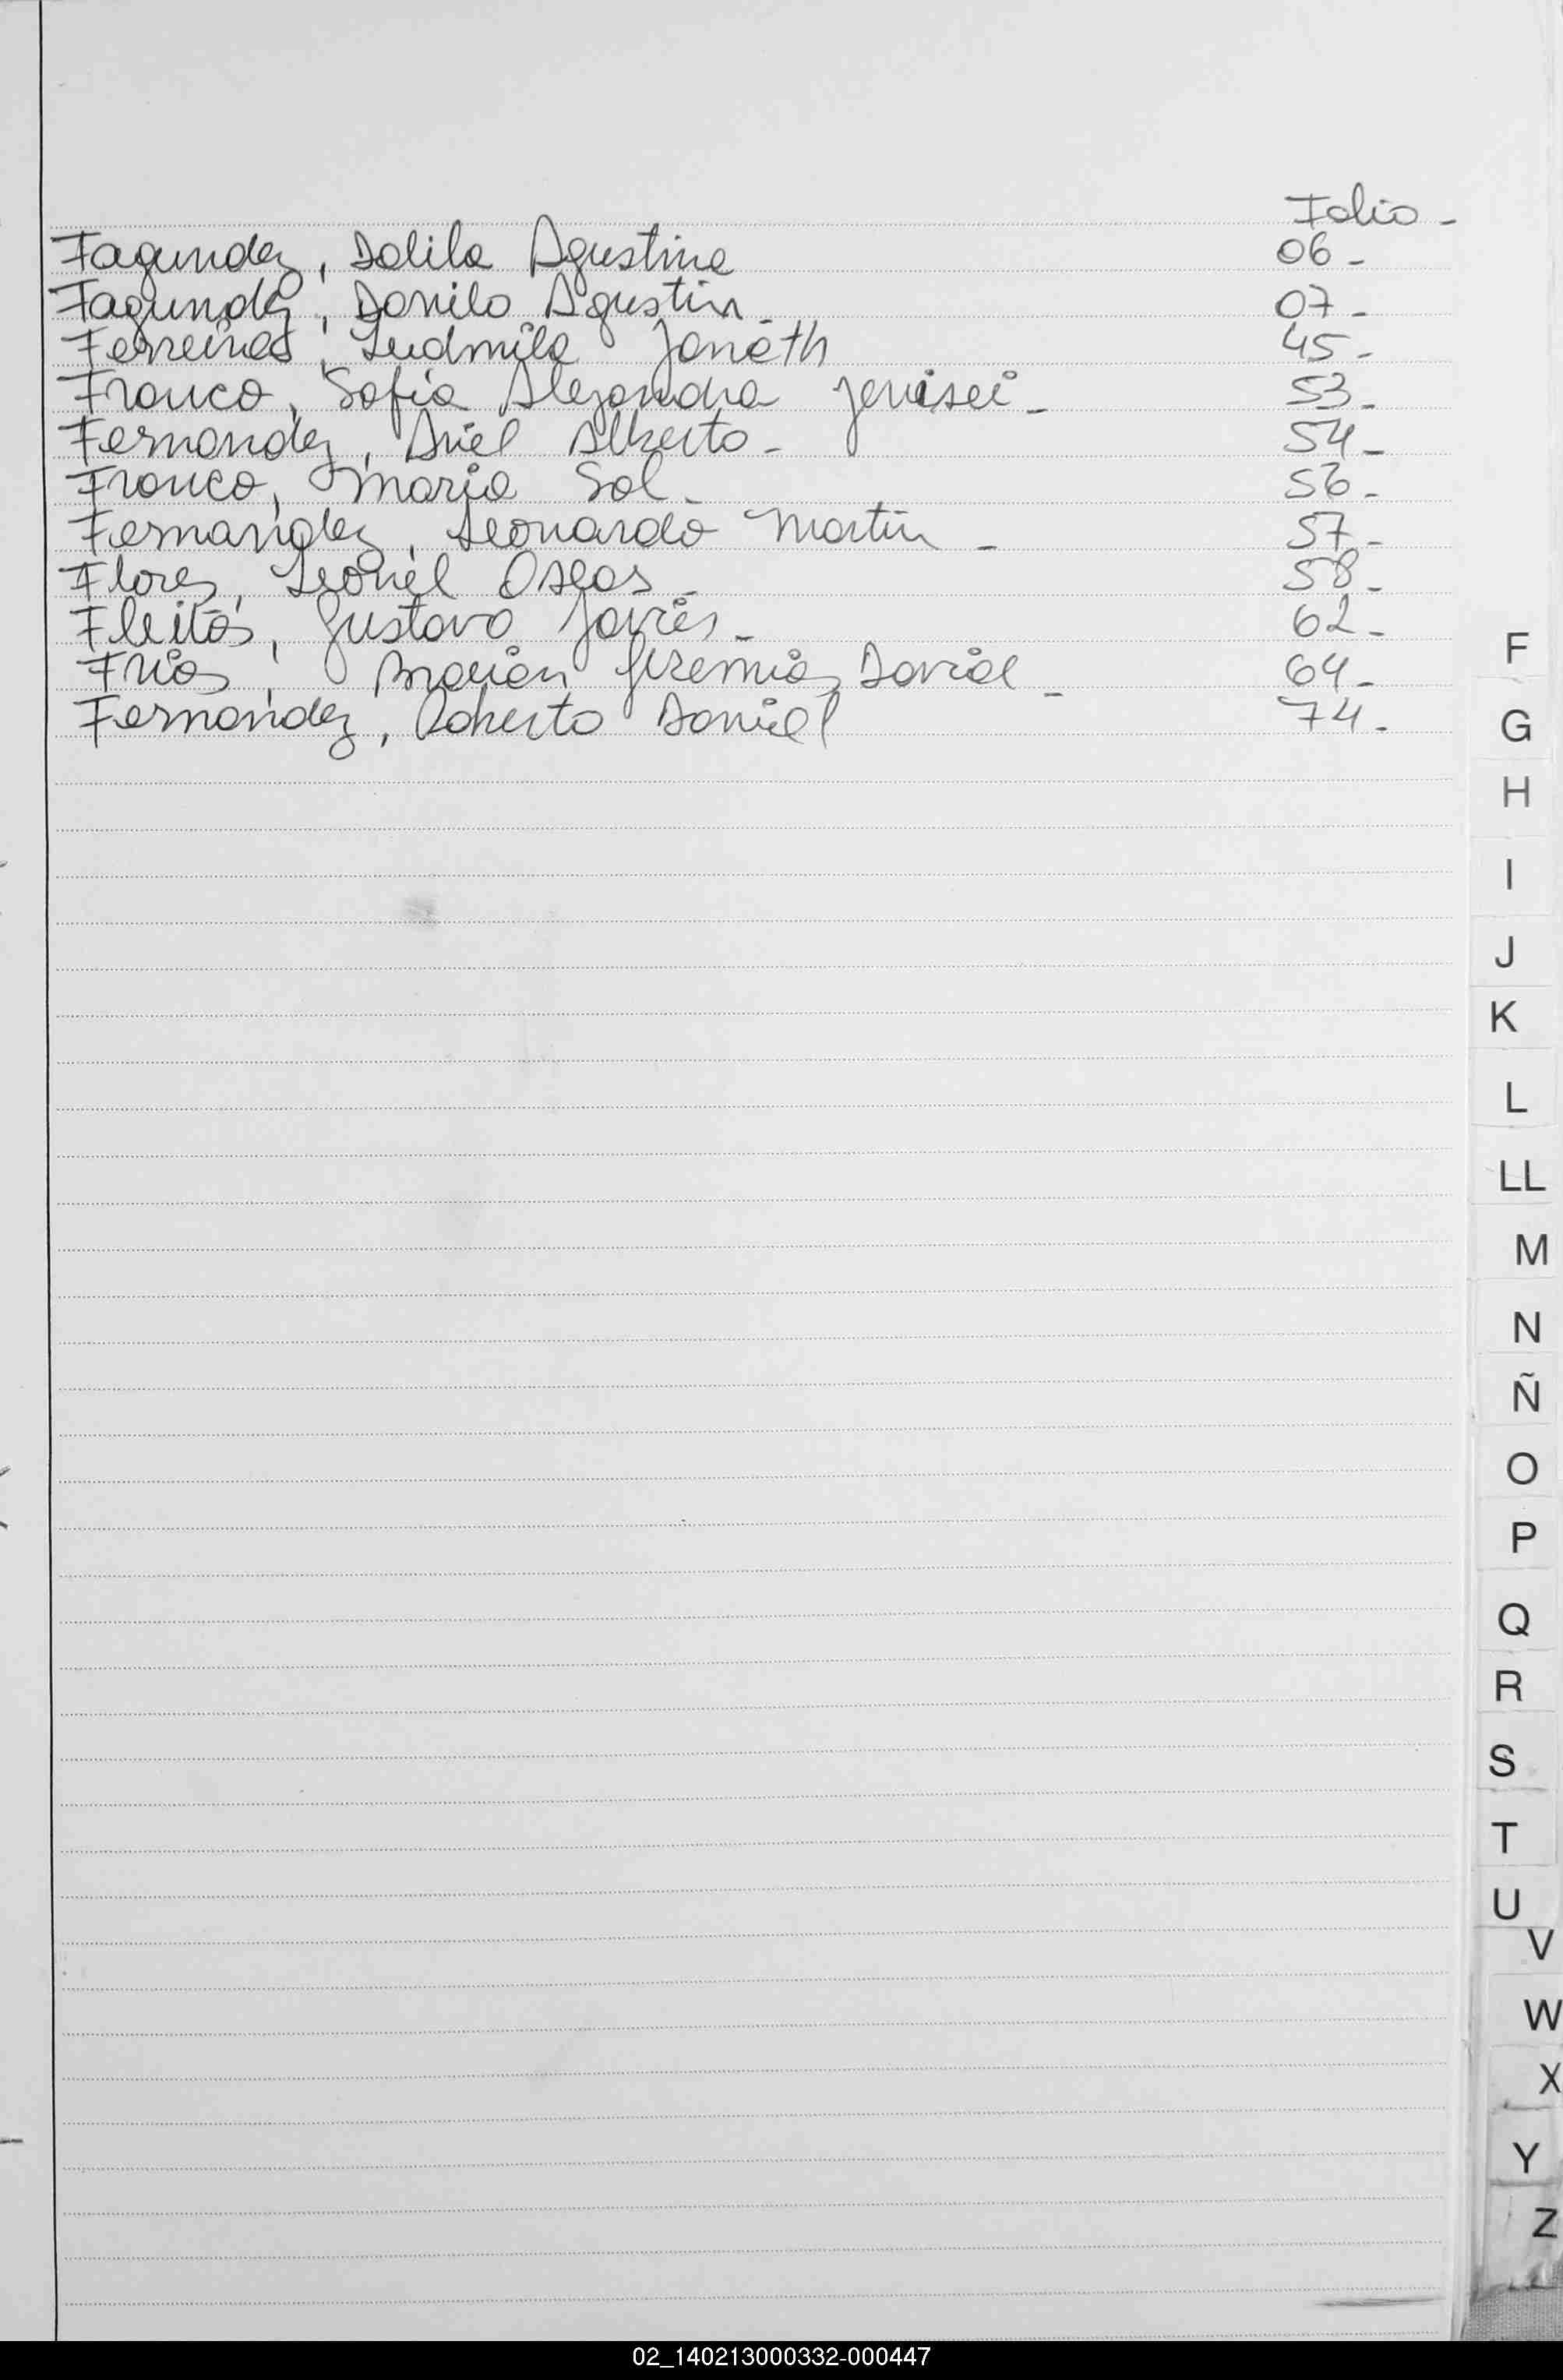 Folio -
Fagundez, Dalila Agustina 06 -
Fagundez, Danilo Agustin - 07 -
Ferreiras, Ludmila Janeth 45 -
Franco, Sofia Alejandra Jenisei - 53 -
Fernandez, Ariel Alberto - 54 -
Franco, Maria Sol - 56 -
Fernandez, Leonardo Martin - 57 -
Flores, Leonel Oseas - 58 -
Fleitas, Gustavo Javier - 62 -
Frias, Jeremias David - 64 -
Fernandez, Roberto Daniel 74 -
F
G
H
I
J
K
L
LL
M
N
Ñ
O
P
Q
R
S
T
U
V
W
X
Y
Z
02_140213000332-000447